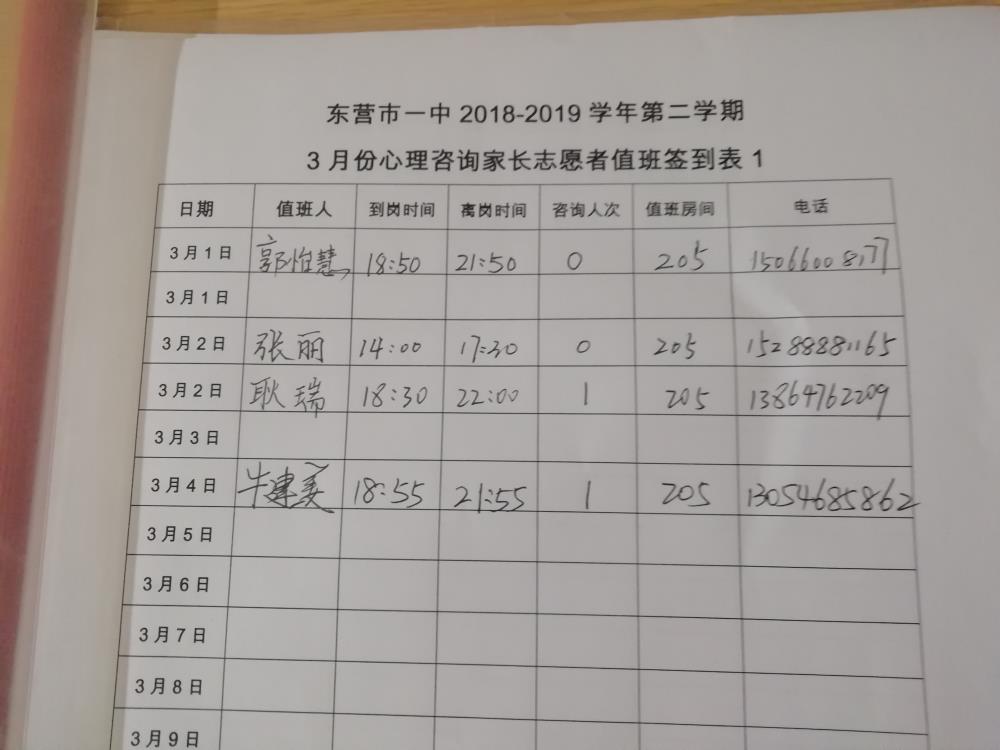 东营市一中 2018-2019 学年第二学期
3 月份心理咨询家长志愿者值班签到表 1
日期 值班人 到岗时间 离岗时间 咨询人次 值班房间 电话
3月1日 郭怡慧 18:50 21:50 0 205 15066008177
3月1日
3月2日 张丽 14:00 17:30 0 205 15288881165
3月2日 耿瑞 18:30 22:00 1 205 13864762209
3月3日
3月4日 牛建美 18:55 21:55 1 205 13054685862
3月5日
3月6日
3月7日
3月8日
3月9日